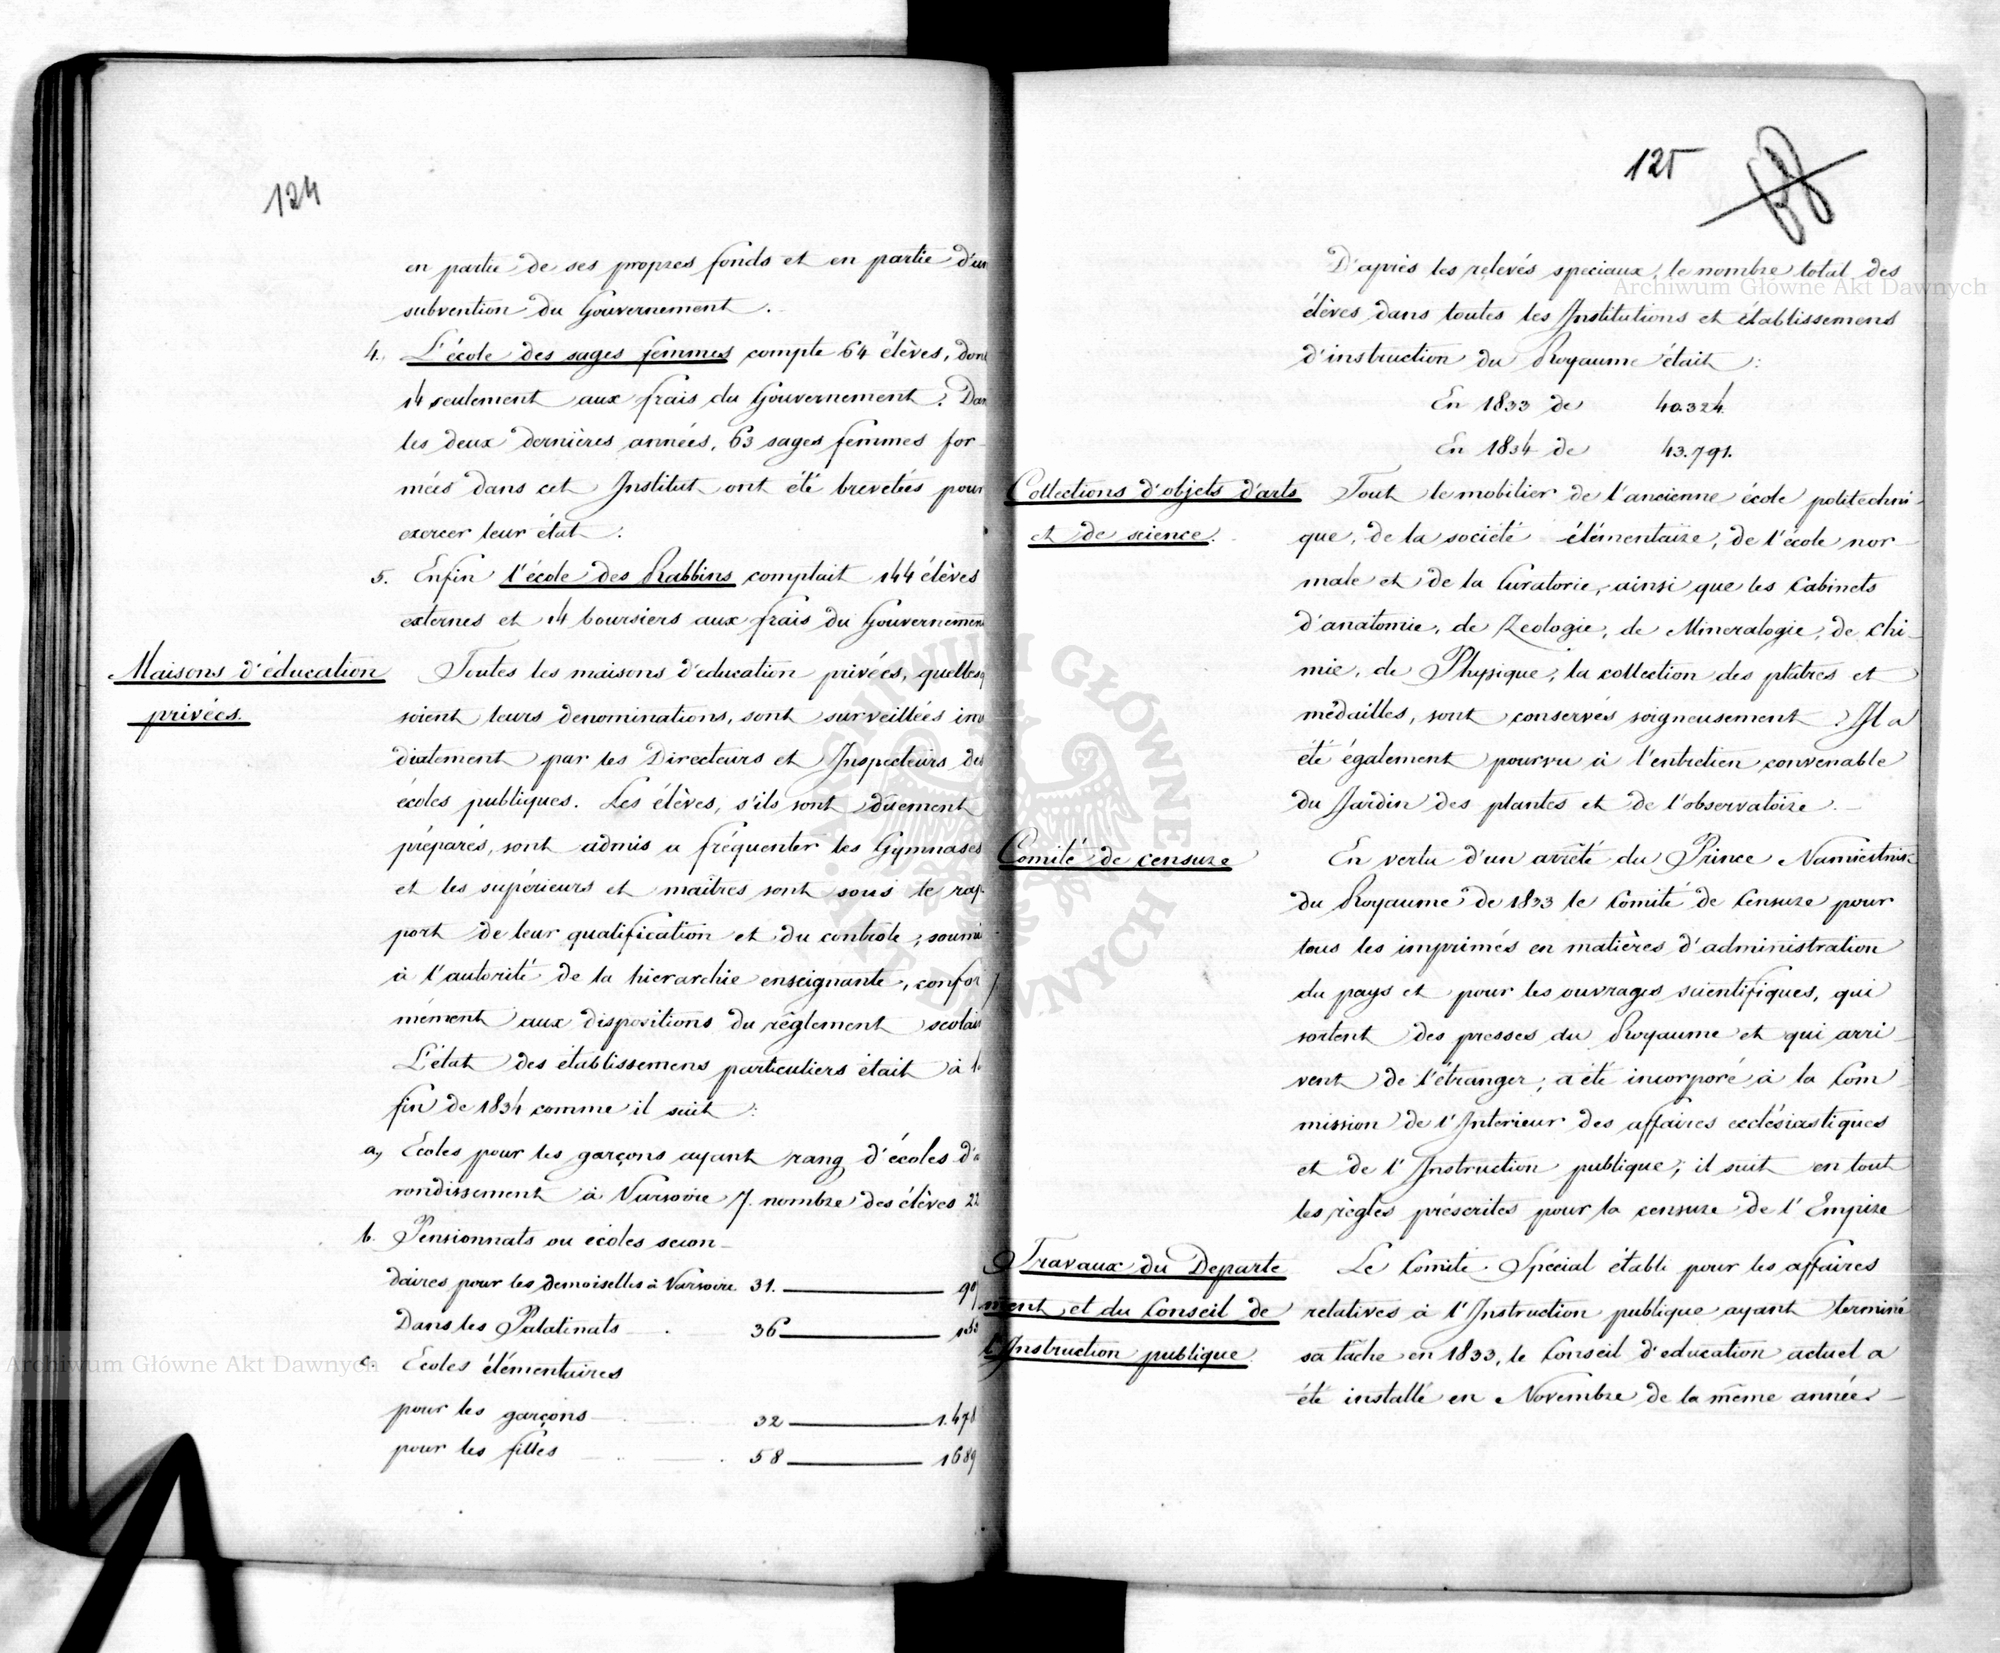 124
en partie de ses propres fonds et en partie d'un
subvention du Gouvernement.
4. L'école des sages femmes compte 64 élèves, dont
14 seulement aux frais du Gouvernement. Dan
les deux dernières années, 63 sages femmes for-
mées dans cet Institut ont été brevetées pour
exercer leur état.
5. Enfin l'école des Rabbins comptait 144 élèves
externes et 14 boursiers aux frais du Gouvernemen
Maisons d'éducation
privées.
Toutes les maisons d'education privées, quelles
soient leurs denominations, sont surveillées
diatement par les Directeurs et Inspecteurs des
écoles publiques. Les élèves, s'ils sont dûement
préparés, sont admis a fréquenter les Gymnases
et les supérieurs et maitres sont sous le rap-
port de leur qualification et du controle, soumi
à l'autorité de la hierarchie enseignante, confor
mément aux dispositions du règlement scolai
L'état des établissemens particuliers était à l
fin de 1834 comme il suit:
a, Ecoles pour les garçons ayant rang d'écoles d'a
rondissement à Varsovie 7. nombre des élèves 22
b. Pensionnats ou écoles secon-
daires pour les demoiselles à Varsovie 31. 90
Dans les Palatinats 36
c. Ecoles élémentaires
pour les garçons 32 1.478
pour les filles 58 1689
125
D'après les relevés speciaux, le nombre total des
élèves dans toutes les Institutions et établissemens
d'instruction du Royaume était:
En 1833 de 40.324.
En 1834 de 43.791.
Collections d'objets d'arts
et de science.
Tout le mobilier de l'ancienne école politechni-
que, de la société élémentaire, de l'école nor-
male et de la Curatorie, ainsi que les Cabinets
d'anatomie, de Zeologie, de Mineralogie, de Chi-
mie, de Physique, la collection des plâtres et
médailles, sont conservés soigneusement. Il a
été également pourvu à l'entretien convenable
du Jardin des plantes et de l'observatoire.
Comité de censure
En vertu d'un arrêté du Prince Namiestnik
du Royaume de 1833 le Comité de Censure pour
tous les imprimés en matières d'administration
du pays et pour les ouvrages scientifiques, qui
sortent des presses du Royaume et qui arri-
vent de l'étranger, a été incorporé à la Com-
mission de l'Interieur des affaires ecclésiastiques
et de l'Instruction publique; il suit en tout
les règles préscrites pour la censure de l'Empire
Travaux du Departe
ment et du Conseil de
l'Instruction publique.
Le Comité Spécial établi pour les affaires
relatives à l'Instruction publique ayant terminé
sa tâche en 1833, le Conseil d'education actuel a
été installé en Novembre de la même année
Archiwum Główne Akt Dawnych
Archiwum Główne Akt Dawnych
ARCHIWUM GŁÓWNE AKT DAWNYCH